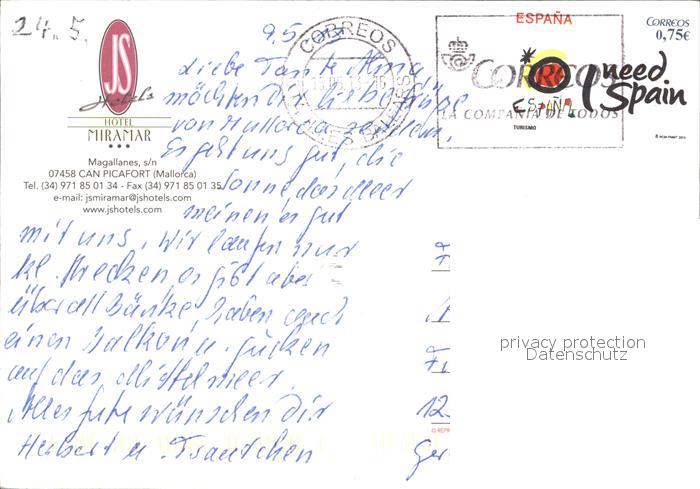 24. 5.
JS
Hotels
HOTEL
MIRAMAR
Magallanes, s/n
07458 CAN PICAFORT (Mallorca)
Tel. (34) 971 85 01 34 - Fax (34) 971 85 01 35
e-mail: jsmiramar@jshotels.com
www.jshotels.com
CORREOS
ESPAÑA
CORREOS
LA COMPAÑIA DE TODOS
ESPAÑA
TURISMO
I need
Spain
CORREOS
0,75€
9.5
Liebe Tante
möchten Dir liebe Grüße
von Mallorca senden.
Es geht uns gut, die
Sonne das Meer
meinen es gut
mit uns. Wir laufen nur
kl. Strecken, es gibt aber
überall Bänke, haben auch
einen Balkon u. gucken
auf das Mittelmeer.
Alles gute wünschen Dir
Herbert u. Trautchen
12.
Ger
privacy protection
Datenschutz